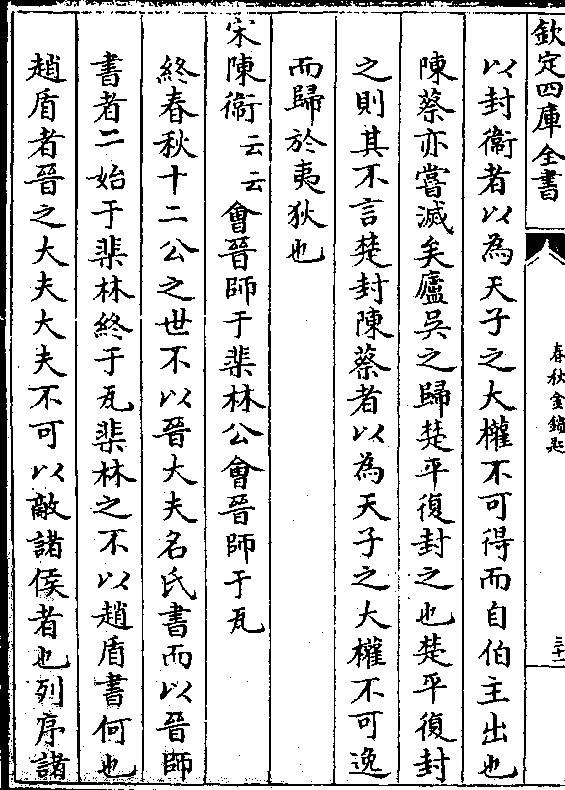 欽定四庫全書
春秋金鎖匙
三十一
以封衞者以為天子之大權不可得而自伯主出也
陳蔡亦嘗滅矣廬吳之歸楚平復封之也楚平復封
之則其不言楚封陳蔡者以為天子之大權不可逸
而歸於夷狄也
宋陳衞云云會晉師于棐林公會晉師于瓦
終春秋十二公之世不以晉大夫名氏書而以晉師
書者二始于棐林終于瓦棐林之不以趙盾書何也
趙盾者晉之大夫大夫不可以敵諸侯者也列序諸